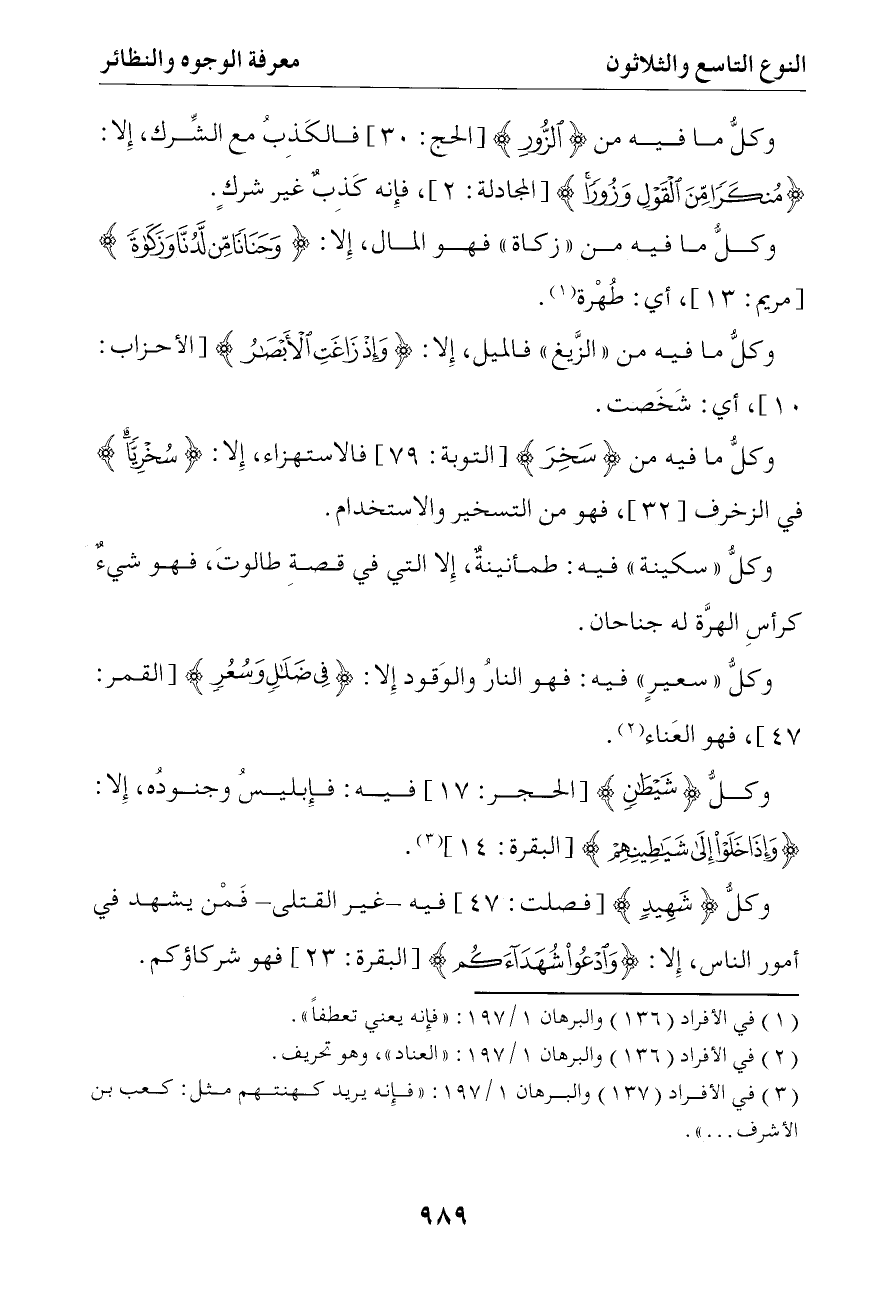 النوع التاسع والثلاثون معرفة الوجوه والنظائر
وكلُّ ما فيه من ﴿ ٱلزُّورِ ﴾ [الحج: ٣٠] فالكَذبُ مع الشِّرك، إلا:
﴿ مُنكَرًا مِّنَ ٱلْقَوْلِ وَزُورًا ﴾ [المجادلة: ٢]، فإنه كَذبٌ غير شركٍ.
وكلُّ ما فيه من «زكاة» فهو المال، إلا: ﴿ وَحَنَانًا مِّن لَّدُنَّا وَزَكَوٰةً ﴾
[مريم: ١٣]، أي: طُهْرة(١).
وكلُّ ما فيه من «الزَّيغ» فالميل، إلا: ﴿ وَإِذْ زَاغَتِ ٱلْأَبْصَٰرُ ﴾ [الأحزاب:
١٠]، أي: شَخَصت.
وكلُّ ما فيه من ﴿ سَخِرَ ﴾ [التوبة: ٧٩] فالاستهزاء، إلا: ﴿ سُخْرِيًّا ۗ ﴾
في الزخرف [٣٢]، فهو من التسخير والاستخدام.
وكلُّ «سكينة» فيه: طمأنينةٌ، إلا التي في قصة طالوتَ، فهو شيءٌ
كرأسِ الهرَّة له جناحان.
وكلُّ «سعيرٍ» فيه: فهو النارُ والوَقود إلا: ﴿ فِى ضَلَٰلٍ وَسُعُرٍ ﴾ [القمر:
٤٧]، فهو العَناء(٢).
وكلُّ ﴿ شَيْطَٰنٍ ﴾ [الحجر: ١٧] فيه: فإبليسُ وجنودُه، إلا:
﴿ وَإِذَا خَلَوْا۟ إِلَىٰ شَيَٰطِينِهِمْ ﴾ [البقرة: ١٤](٣).
وكلُّ ﴿ شَهِيدٍ ﴾ [فصلت: ٤٧] فيه -غير القتلى- فَمْن يشهد في
أمور الناس، إلا: ﴿ وَٱدْعُوا۟ شُهَدَآءَكُم ﴾ [البقرة: ٢٣] فهو شركاؤكم.
(١) في الأفراد (١٣٦) والبرهان ١/١٩٧: «فإنه يعني تعطفاً».
(٢) في الأفراد (١٣٦) والبرهان ١/١٩٧: «العناد»، وهو تحريف.
(٣) في الأفراد (١٣٧) والبرهان ١/١٩٧: «فإنه يريد كهنتهم مثل: كعب بن
الأشرف...».
٩٨٩